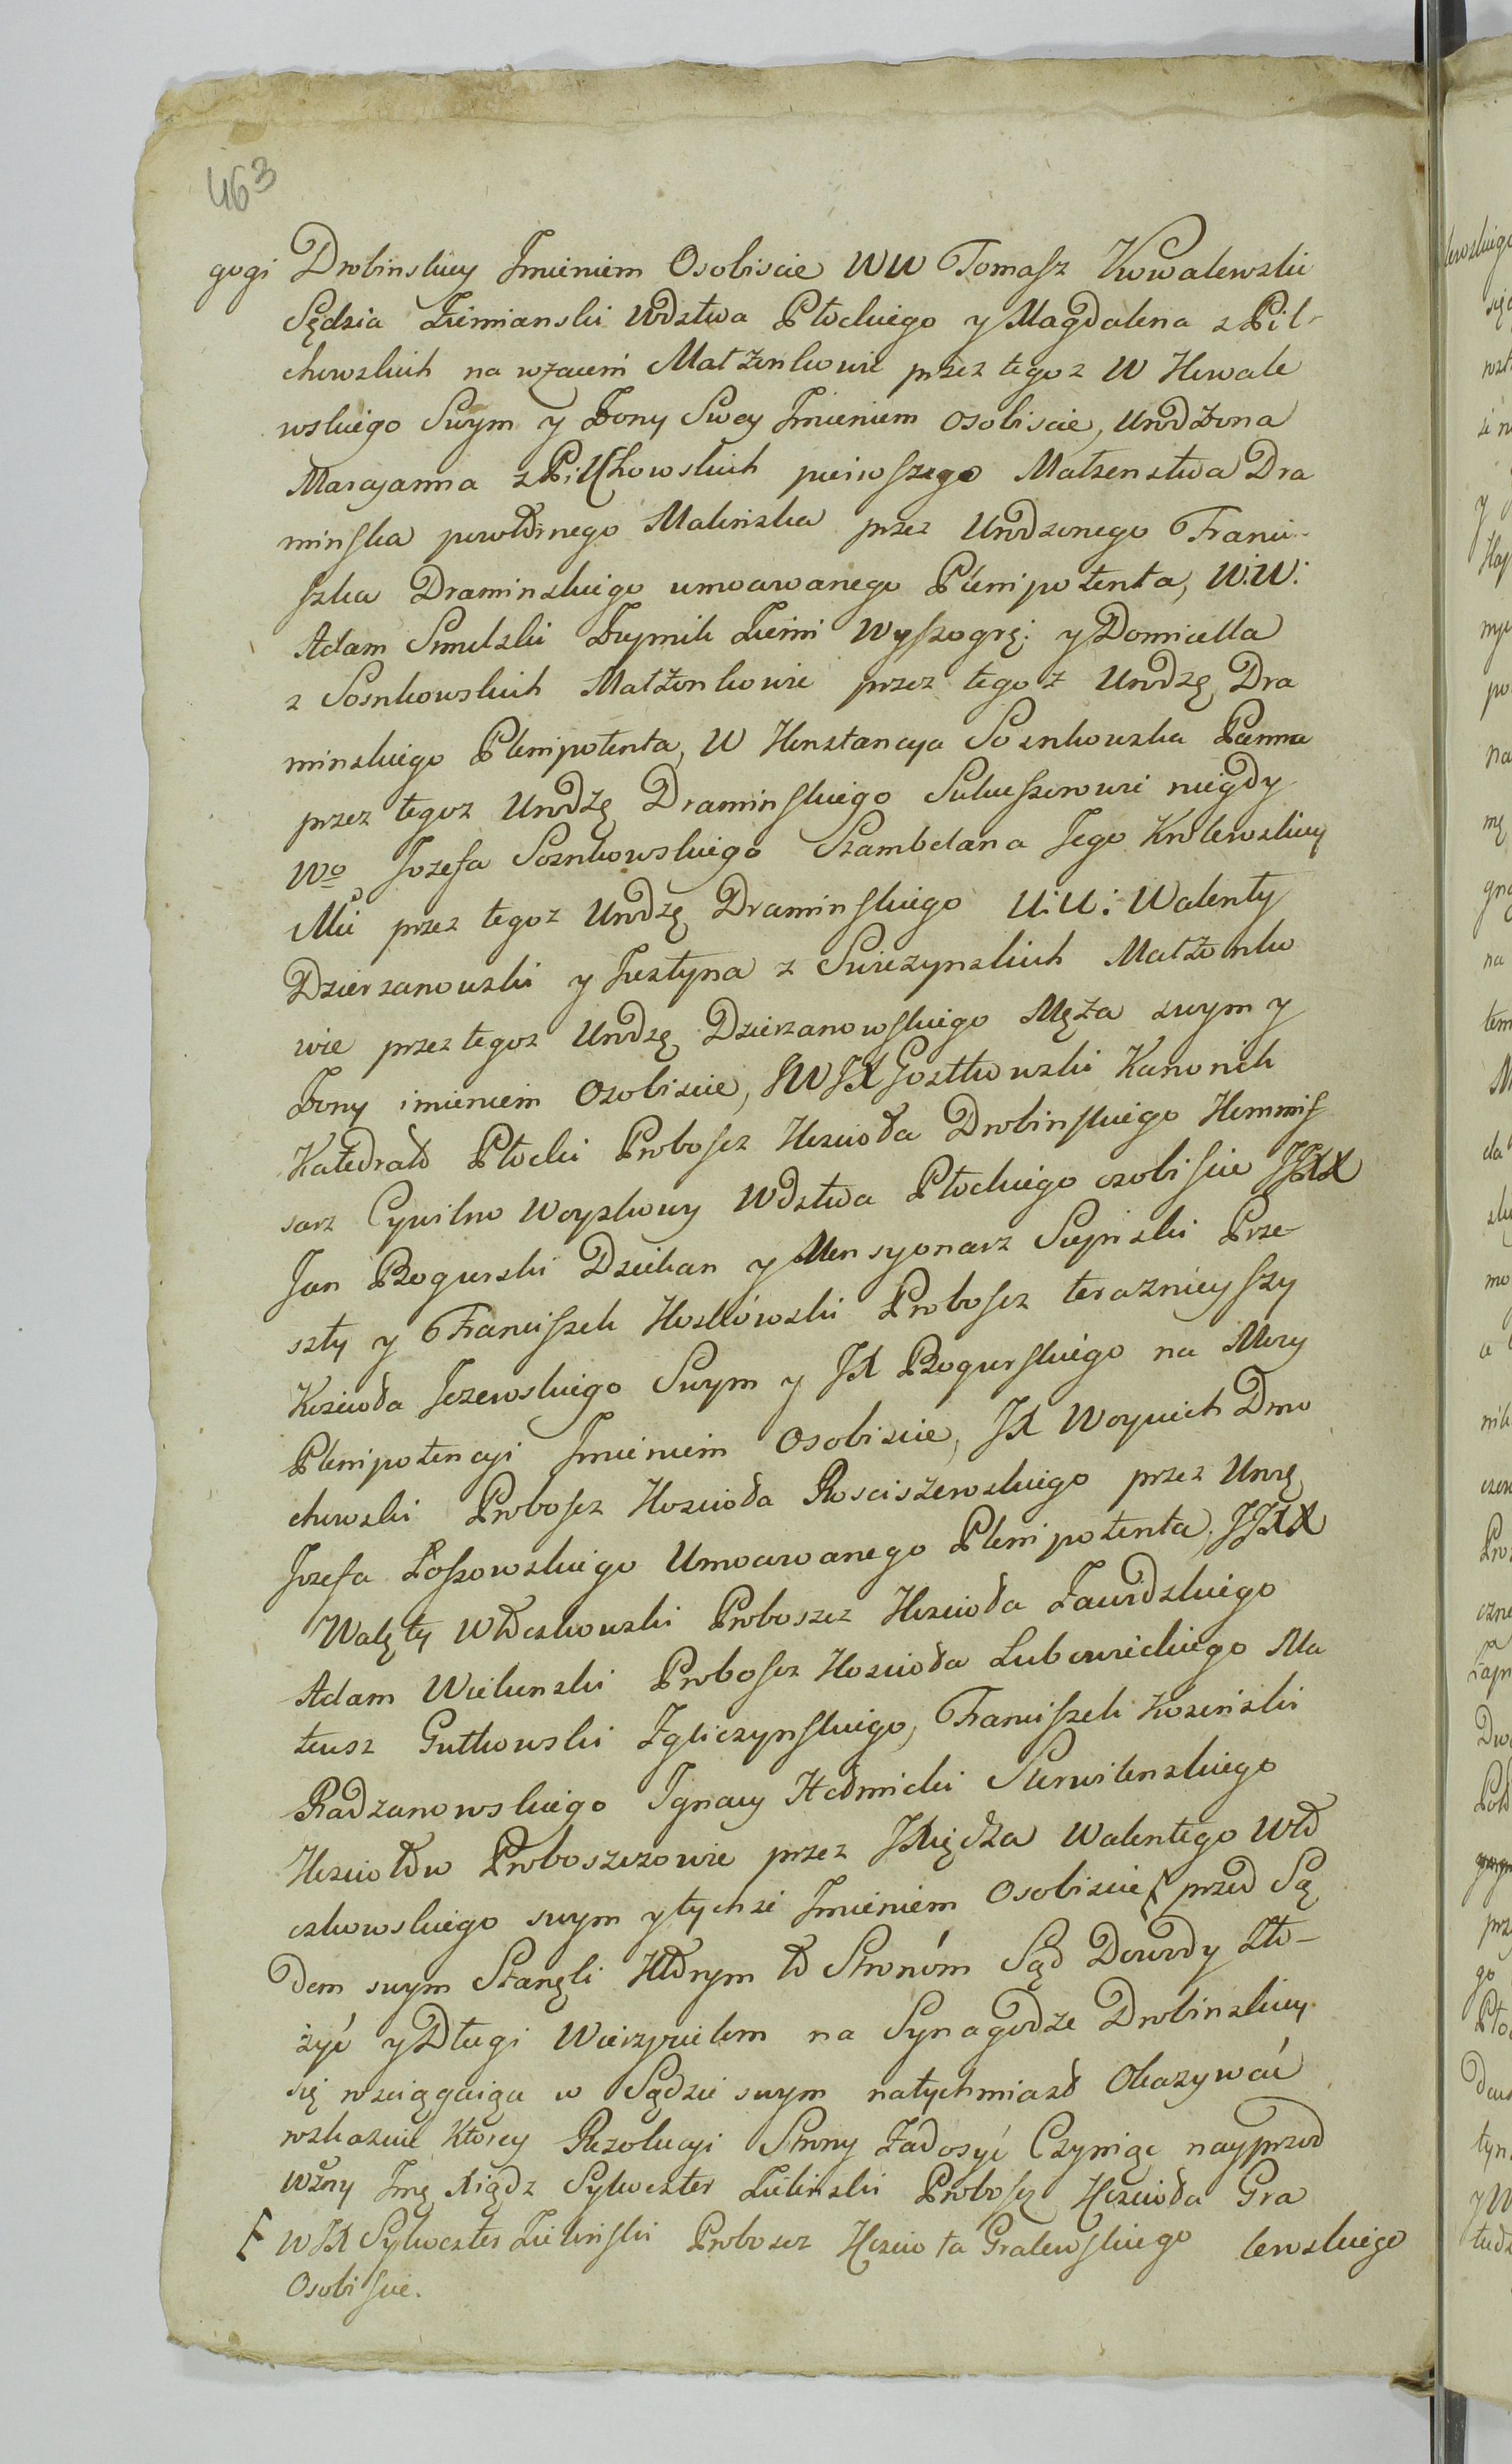 463
gogi Drobinskiey Imieniem Osobiscie WW Tomasz Kowalewski
Sędzia Ziemianski Wdztwa Płockiego y Magdalena z Pil-
chowskich na wzaiem Małżonkowie przez tegoz W Kowale
wskiego Swym y Zony Swey Imieniem osobiscie, Urodzona
Maryanna z Pilchowskich pierwszego Małzenstwa Dra
minska powtórnego Malińska przez Urodzonego Franci-
szka Draminskiego umocowanego Plenipotenta, W:W:
Adam Smulski Zupnik Ziemi Wyszogrę: y Domicella
z Sosnkowskich Małżonkowie przez tegoż Urodzę Dra
minskiego Plenipotenta, W Konstancya Sosnkowska Panna
przez tegoz Urodzę Draminskiego Sukcessorowie niegdy
Wo Jozefa Sosnkowskiego Szambelana Jego Krolewskiey
Mci przez tegoz Urodzę Draminskiego U:U: Walenty
Dzierzanowski y Justyna z Swiezynskich Małżonko
wie przez tegoz Urodzę Dzierzanowskiego Męża swym y
Zony imieniem Osobiscie, JWJX Gostkowski Kanonik
Katedrało Płocki Proboszcz Koscioła Drobinskiego Kommis
sarz Cywilno Woyskowy Wdztwa Płockiego osobiscie JJXX
Jan Bogurski Dziekan y Mensyonarz Sierpski Prze-
szły y Franciszek Koskowski Proboszcz teraznieyszy
Koscioła Jezewskiego Swym y JX Bogurskiego na Mocy
Plenipotencyi Imieniem Osobiscie, JX Woyciech Dmo
chowski Proboszcz Koscioła Rosciszewskiego przez Urorę
Jozefa Lossowskiego Umocowanego Plenipotenta, JJXX
Walęty Włoczkowski Proboszcz Koscioła Zawidzkiego
Adam Wielunski Proboszcz Koscioła Lubowidzkiego Ma
teusz Gutkowski Zgliczynskiego, Franciszek Kosinski
Radzanowskiego Ignacy Chełmicki Skrwilenskiego
Kosciołow Proboszczowie przez JXiędza Walentego Wło
czkowskiego swym y tychże Imieniem Osobiscie F przed Są
dem swym Stanęli Którym to Stronóm Sąd Dowody Zło-
żyć y Długi Wierzycielom na Synagodze Drobinskiey
się wsciągaiące w Sądzie swym natychmiast Okazywać
wskazuie Ktorey Rezolucyi Strony Zadosyć Czyniąc nayprzod
Wżny Jmę Xiądz Sylwester Zielinski Proboszcz Koscioła Gra
F WJX Sylwester Zieliński Proboszcz Koscioła Gralewskiego lewskiego
Osobiscie.